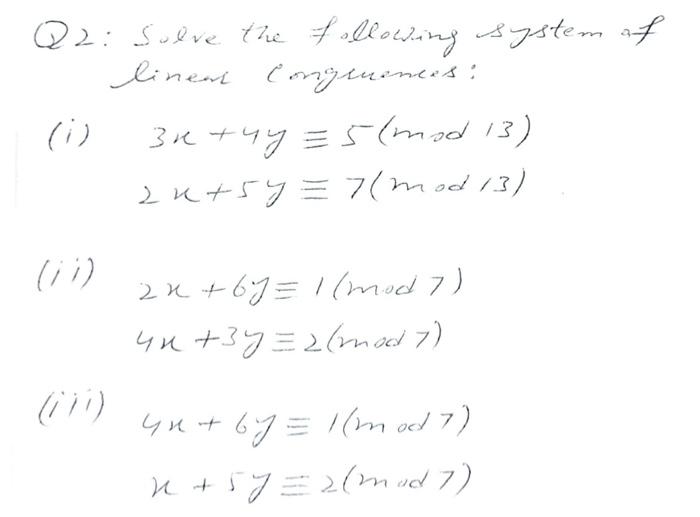 Q2: Solve the following system of
linear Congruences:
(i) 3x + 4y ≡ 5 (mod 13)
2x + 5y ≡ 7 (mod 13)
(ii) 2x + 6y ≡ 1 (mod 7)
4x + 3y ≡ 2 (mod 7)
(iii) 4x + 6y ≡ 1 (mod 7)
x + 5y ≡ 2 (mod 7)